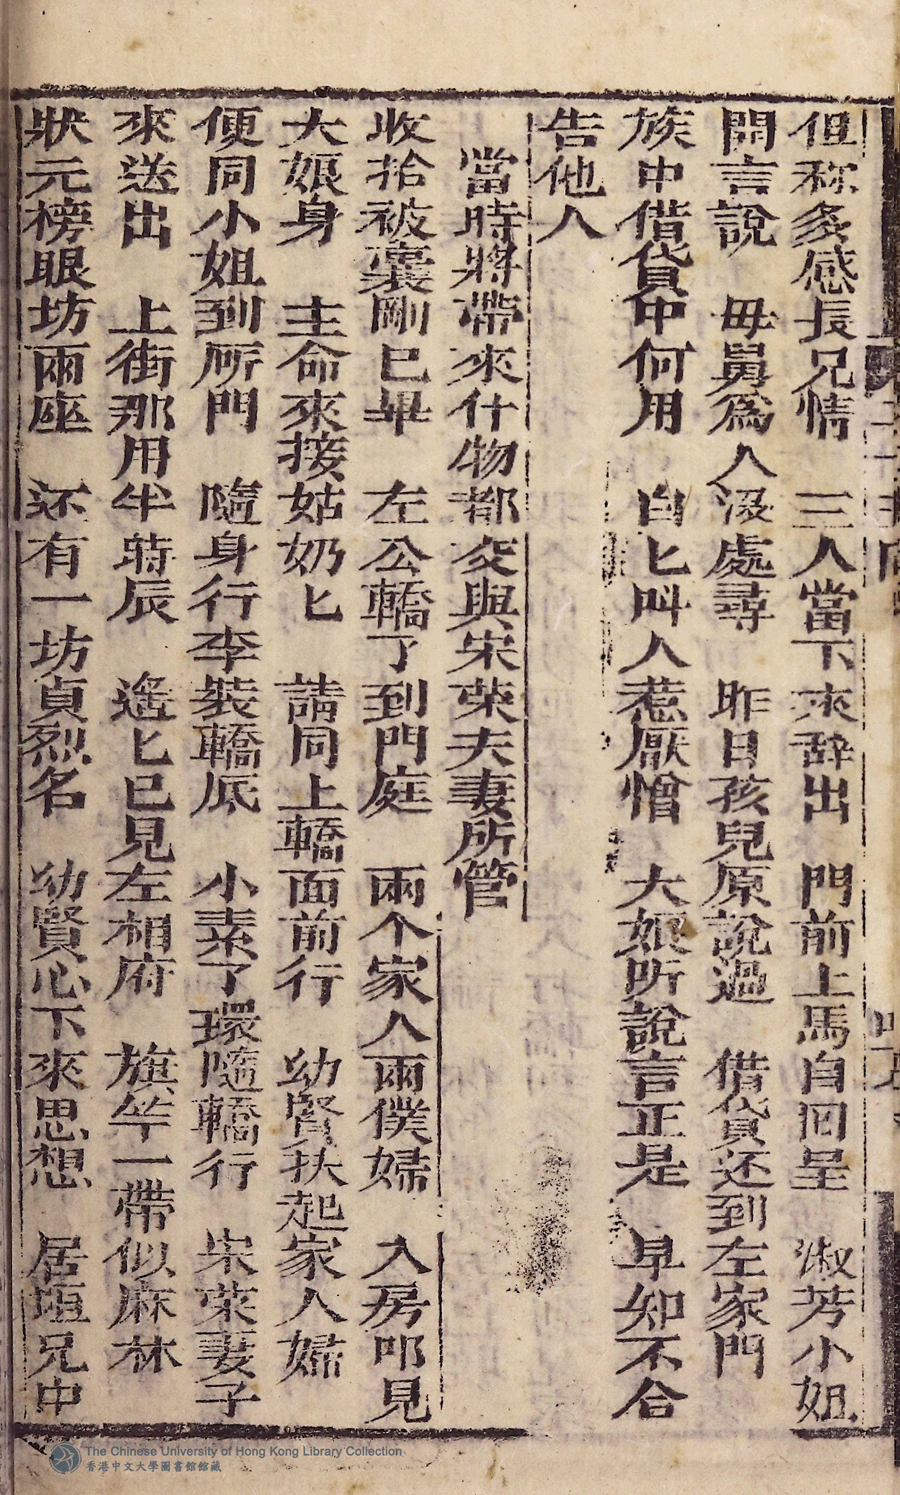 但称多感長兄情　三人當下來辞出　門前上馬自囘呈　淑芳小姐
開言說　毋舅爲人没處尋　昨日孩兒原說過　借貸还到左家門
族中借貸中何用　自匕叫人惹厭憎　大娘所說言正是　早知不合
告他人
當時將帶來什物都交與宋荣夫妻所管
收拾被囊剛已畢　左公轎了到門庭　兩个家人兩僕婦　入房叩見
大娘身　主命來接姑奶匕　請同上轎面前行　幼賢扶起家人婦
便同小姐到所門　隨身行李装轎底　小素了環隨轎行　宋荣妻子
來送出　上街那用半時辰　遙匕已見左相府　旗竿一帶似麻林
狀元榜眼坊兩座　还有一坊貞烈名　幼賢心下來思想　居垣兄中
The Chinese University of Hong Kong Library Collection
香港中文大學圖書館館藏